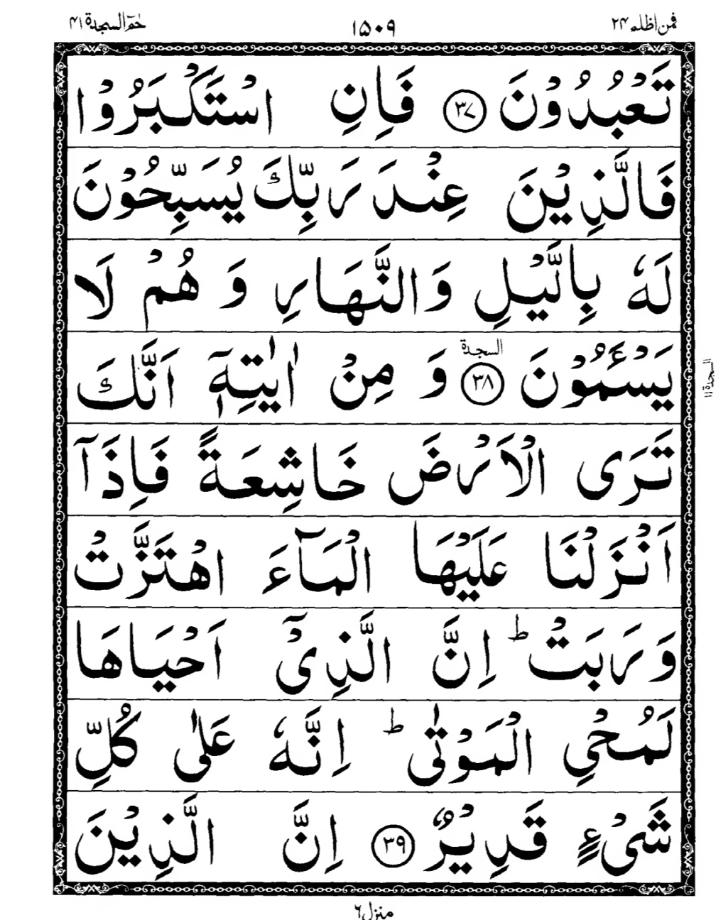 فمن اظلم ۲۴ ۱۵۰۹ حٰمٓ السجدة ۴۱
تَعْبُدُوْنَ ﴿۳۷﴾ فَاِنِ اسْتَكْبَرُوْا
فَالَّذِيْنَ عِنْدَ رَبِّكَ يُسَبِّحُوْنَ
لَهٗ بِالَّيْلِ وَالنَّهَارِ وَ هُمْ لَا
يَسْـَٔمُوْنَ ﴿۳۸﴾ السجدة وَ مِنْ اٰيٰتِهٖۤ اَنَّكَ
السجدة ۱۱
تَرَى الْاَرْضَ خَاشِعَةً فَاِذَاۤ
اَنْزَلْنَا عَلَيْهَا الْمَآءَ اهْتَزَّتْ
وَرَبَتْ ؕ اِنَّ الَّذِيْۤ اَحْيَاهَا
لَمُحْيِ الْمَوْتٰى ؕ اِنَّهٗ عَلٰى كُلِّ
شَيْءٍ قَدِيْرٌ ﴿۳۹﴾ اِنَّ الَّذِيْنَ
منزل ۶